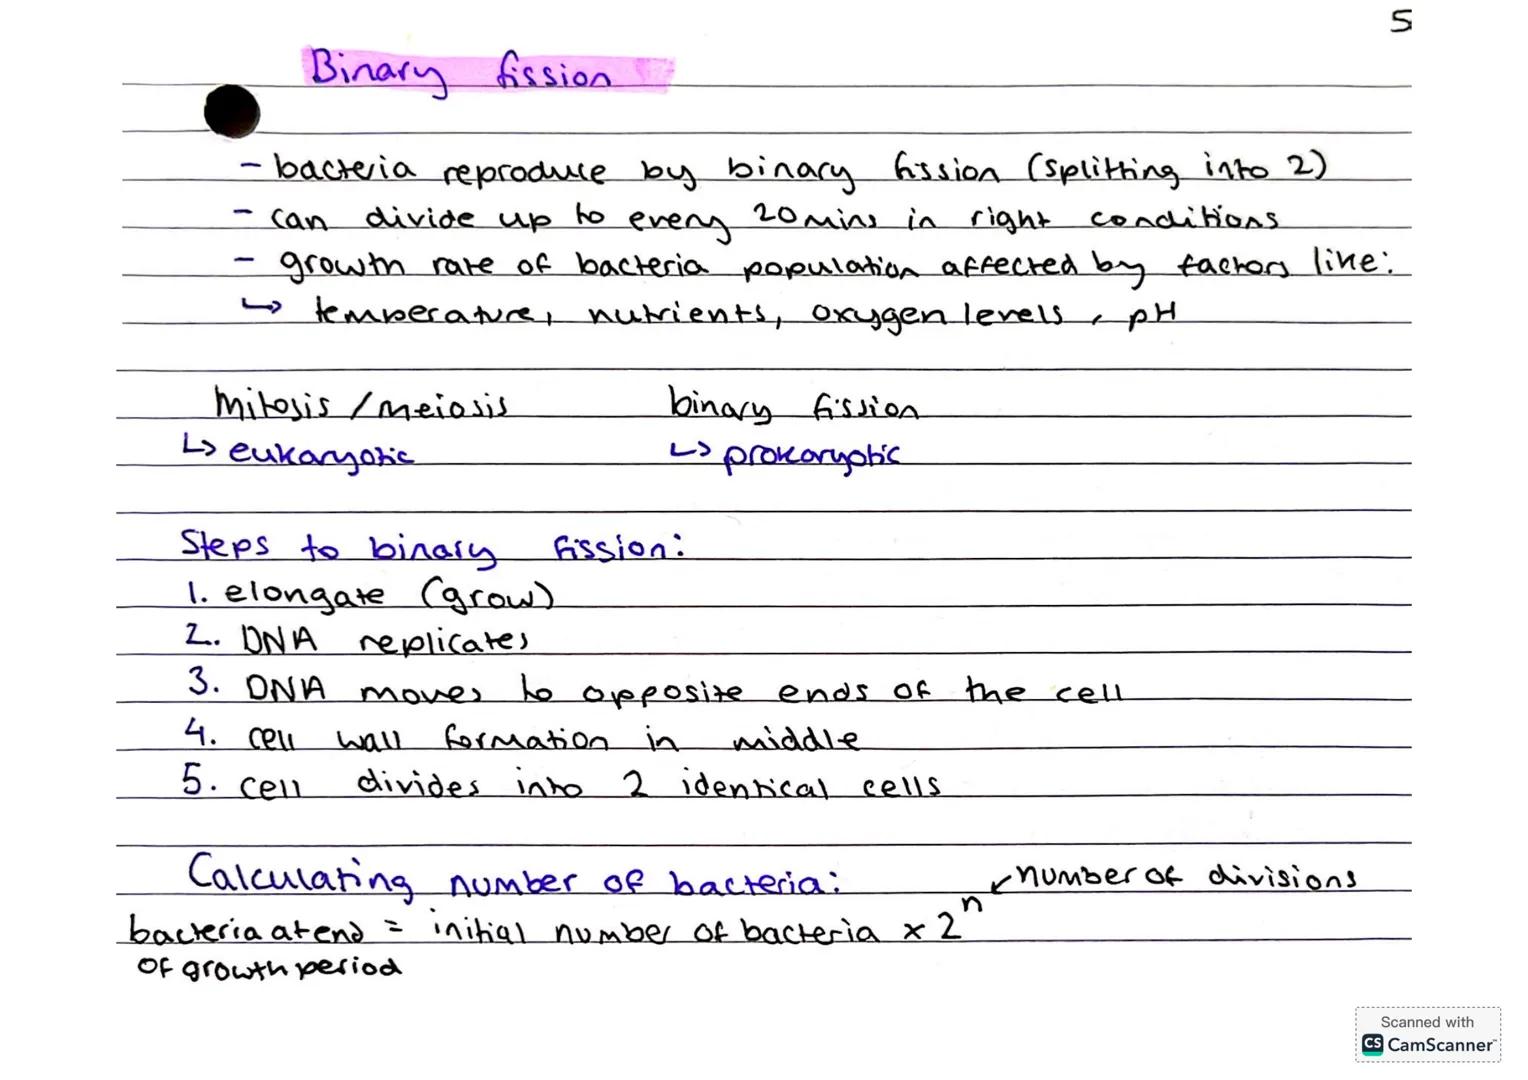 5
Binary fission
- bacteria reproduce by binary fission (splitting into 2)
- can divide up to every 20mins in right conditions
- growth rate of bacteria population affected by factors like:
↳ temperature, nutrients, oxygen levels, pH
Mitosis / meiosis binary fission
↳ eukaryotic ↳ prokaryotic
Steps to binary fission:
1. elongate (grow)
2. DNA replicates
3. DNA moves to opposite ends of the cell
4. cell wall formation in middle
5. cell divides into 2 identical cells
Calculating number of bacteria: ↙ number of divisions
bacteria at end = initial number of bacteria x 2ⁿ
of growth period
Scanned with
CS CamScanner